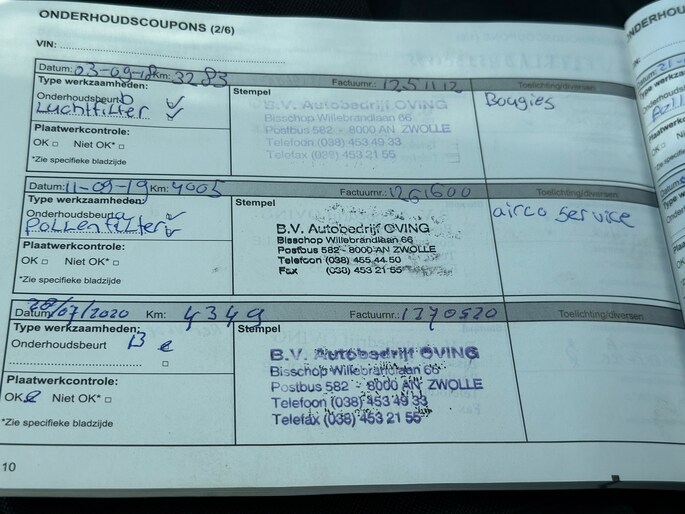 ONDERHOUDSCOUPONS (2/6)
VIN:
Datum: 03-09-18 Km: 3283 Factuurnr.: 1251112 Toelichting/diversen
Type werkzaamheden: Stempel Bougies
Onderhoudsbeurt b
Luchtfilter
B.V. Autobedrijf OVING
Bisschop Willebrandlaan 66
Postbus 582 - 8000 AN ZWOLLE
Telefoon (038) 453 49 33
Telefax (038) 453 21 55
Plaatwerkcontrole:
OK □ Niet OK* □
*Zie specifieke bladzijde
Datum: 11-09-19 Km: 4005 Factuurnr.: 1261600 Toelichting/diversen
Type werkzaamheden: Stempel airco service
Onderhoudsbeurt a
Pollenfilter
B.V. Autobedrijf OVING
Bisschop Willebrandlaan 66
Postbus 582 - 8000 AN ZWOLLE
Telefoon (038) 455 44 50
Fax (038) 453 21 55
Plaatwerkcontrole:
OK □ Niet OK* □
*Zie specifieke bladzijde
Datum: 28/07/2020 Km: 4349 Factuurnr.: 1370520 Toelichting/diversen
Type werkzaamheden: Stempel
Onderhoudsbeurt B
B.V. Autobedrijf OVING
Bisschop Willebrandlaan 66
Postbus 582 - 8000 AN ZWOLLE
Telefoon (038) 453 49 33
Telefax (038) 453 21 55
Plaatwerkcontrole:
OK Niet OK* □
*Zie specifieke bladzijde
10